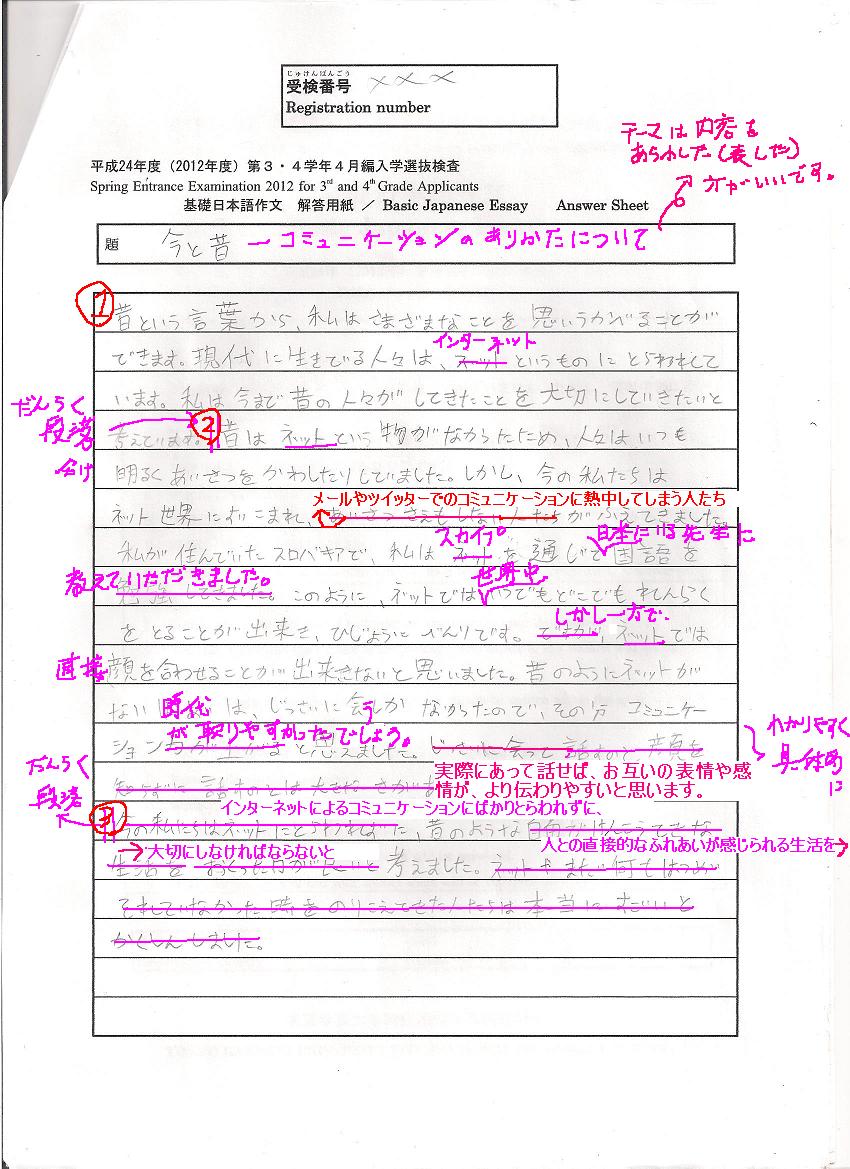 じゅけんばんごう
受検番号 ×××
Registration number
テーマは内容を
あらわした(表した)
方がいいです。
平成24年度（2012年度）第３・４学年４月編入学選抜検査
Spring Entrance Examination 2012 for 3rd and 4th Grade Applicants
基礎日本語作文　解答用紙 ／ Basic Japanese Essay　Answer Sheet
題 今と昔 ーコミュニケーションのありかたについて
①
昔という言葉から、私はさまざまなことを思いうかべることが
インターネット
できます。現代に生きている人々は、ネットというものにとらわれて
います。私は今まで昔の人々がしてきたことを大切にしていきたいと
だんらく
段落
分け
考えています。②昔はネットという物がなかったため、人々はいつも
明るくあいさつをかわしたりしていました。しかし、今の私たちは
メールやツイッターでのコミュニケーションに熱中してしまう人たち
ネット世界に　こまれ、あいさつさえもしない人たちがふえてきました。
スカイプ 日本にいる先生に
私が住んでいたスロバキアで、私はネットを通じて国語を
教えていただきました。 世界中
勉強してきました。このように、ネットではいつでもどこでもれんらく
しかし一方で、
をとることが出来き、ひじょうにべんりです。ですが、ネットでは
直接
顔を合わせることが出来きないと思いました。昔のようにネットが
時代 う
ない は、じっさいに会しかなかったので、その分コミュニケー
が取りやすかったでしょう。
ション力が上がると思えました。じっさいに会って話すのと顔を
わかりやすく
具体的
に
実際にあって話せば、お互いの表情や感
情が、より伝わりやすいと思います。
知らずに話すのとは大きなさがあ
だんらく
段落
インターネットによるコミュニケーションにばかりとらわれずに、
③
今の私たちはネットにとらわれ　　た、昔のような自由が
大切にしなければならないと
人との直接的なふれあいが感じられる生活を
生活を　　　方が良いと考えました。ネットがまだ何もはつめい
それていなかった時をのりこえてきた人たちは本当にすごいと
かくしんしました。